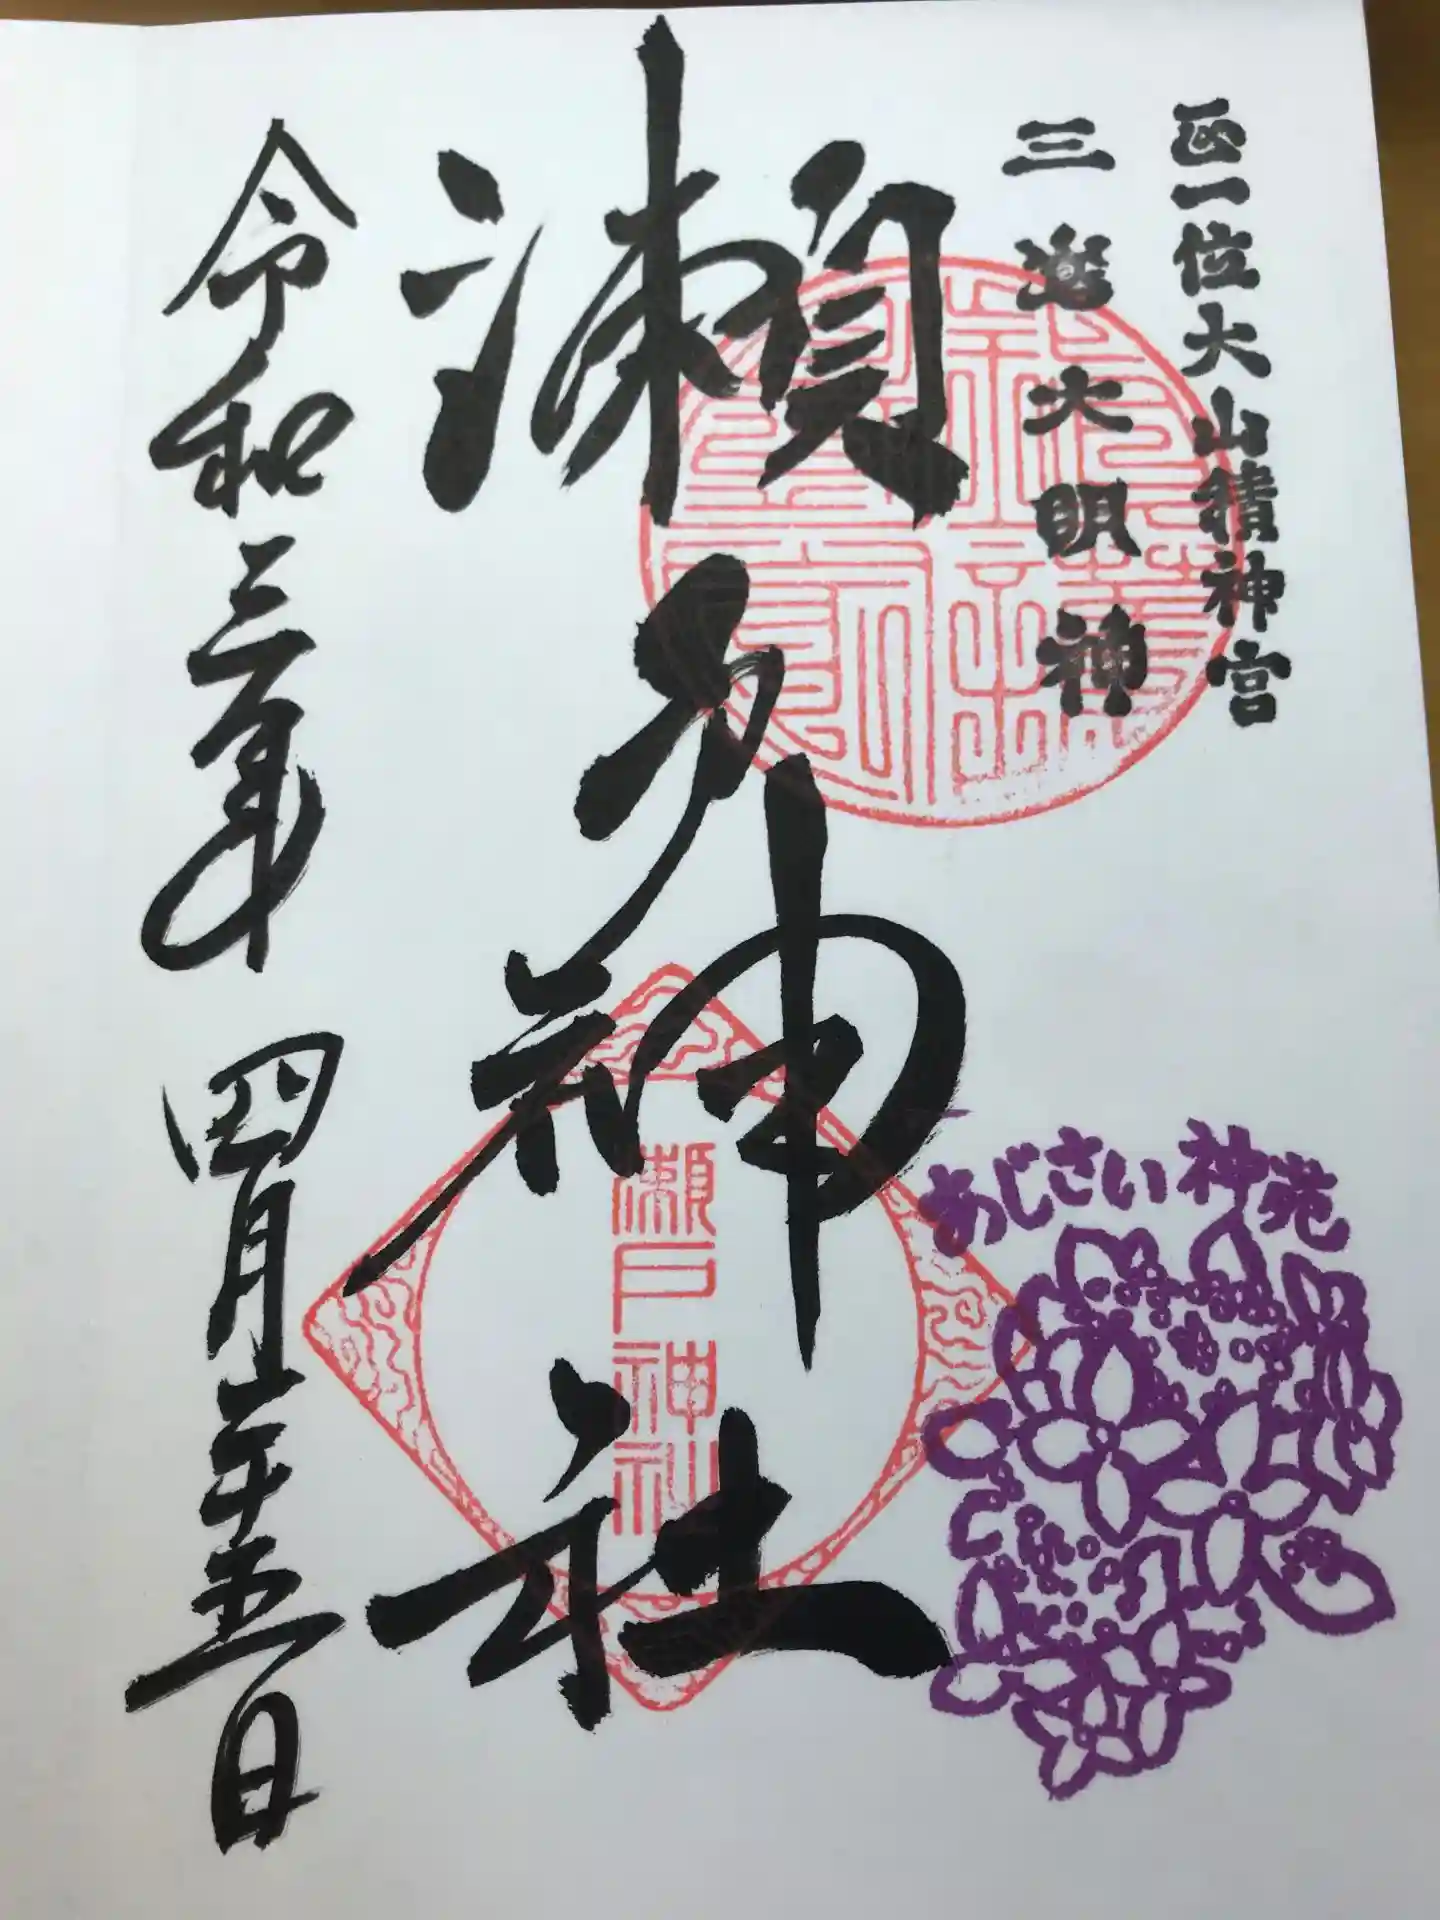 正一位大山積神宮
三大明神
瀬戸神社
瀬戸神社
あじさい神苑
令和三年四月二十五日